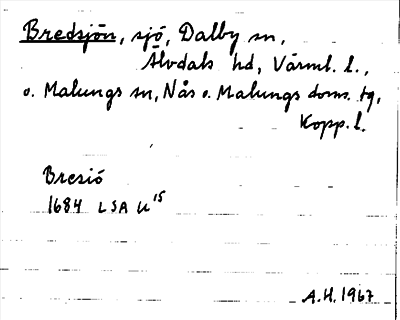 Bredsjön, sjö, Dalby sn,
Älvdals hd, Värml. l.,
o. Malungs sn, Nås o. Malungs doms. tg,
Kopp. l.
Bresiö
1684 LSA U15
A.H. 1967